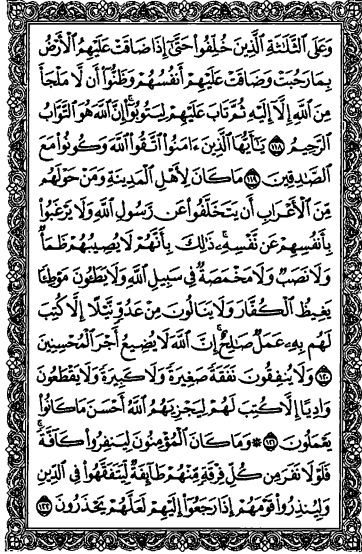 وَعَلَى ٱلثَّلَٰثَةِ ٱلَّذِينَ خُلِّفُوا۟ حَتَّىٰٓ إِذَا ضَاقَتْ عَلَيْهِمُ ٱلْأَرْضُ
بِمَا رَحُبَتْ وَضَاقَتْ عَلَيْهِمْ أَنفُسُهُمْ وَظَنُّوٓا۟ أَن لَّا مَلْجَأَ
مِنَ ٱللَّهِ إِلَّآ إِلَيْهِ ثُمَّ تَابَ عَلَيْهِمْ لِيَتُوبُوٓا۟ إِنَّ ٱللَّهَ هُوَ ٱلتَّوَّابُ
ٱلرَّحِيمُ ١١٨ يَٰٓأَيُّهَا ٱلَّذِينَ ءَامَنُوا۟ ٱتَّقُوا۟ ٱللَّهَ وَكُونُوا۟ مَعَ
ٱلصَّٰدِقِينَ ١١٩ مَا كَانَ لِأَهْلِ ٱلْمَدِينَةِ وَمَنْ حَوْلَهُم
مِّنَ ٱلْأَعْرَابِ أَن يَتَخَلَّفُوا۟ عَن رَّسُولِ ٱللَّهِ وَلَا يَرْغَبُوا۟
بِأَنفُسِهِمْ عَن نَّفْسِهِۦ ۚ ذَٰلِكَ بِأَنَّهُمْ لَا يُصِيبُهُمْ ظَمَأٌ
وَلَا نَصَبٌ وَلَا مَخْمَصَةٌ فِى سَبِيلِ ٱللَّهِ وَلَا يَطَـُٔونَ مَوْطِئًا
يَغِيظُ ٱلْكُفَّارَ وَلَا يَنَالُونَ مِنْ عَدُوٍّ نَّيْلًا إِلَّا كُتِبَ
لَهُم بِهِۦ عَمَلٌ صَٰلِحٌ ۚ إِنَّ ٱللَّهَ لَا يُضِيعُ أَجْرَ ٱلْمُحْسِنِينَ
١٢٠ وَلَا يُنفِقُونَ نَفَقَةً صَغِيرَةً وَلَا كَبِيرَةً وَلَا يَقْطَعُونَ
وَادِيًا إِلَّا كُتِبَ لَهُمْ لِيَجْزِيَهُمُ ٱللَّهُ أَحْسَنَ مَا كَانُوا۟
يَعْمَلُونَ ١٢١ ۞ وَمَا كَانَ ٱلْمُؤْمِنُونَ لِيَنفِرُوا۟ كَآفَّةً ۚ
فَلَوْلَا نَفَرَ مِن كُلِّ فِرْقَةٍ مِّنْهُمْ طَآئِفَةٌ لِّيَتَفَقَّهُوا۟ فِى ٱلدِّينِ
وَلِيُنذِرُوا۟ قَوْمَهُمْ إِذَا رَجَعُوٓا۟ إِلَيْهِمْ لَعَلَّهُمْ يَحْذَرُونَ ١٢٢